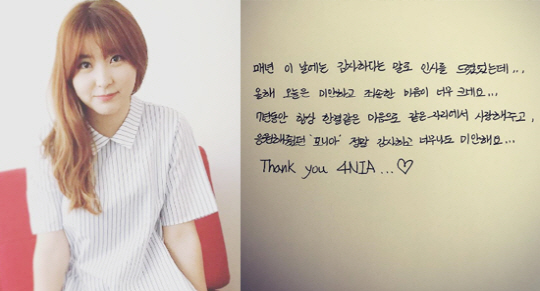 매년 이 날에는 감사하다는 말로 인사를 드렸었는데...
올해 오늘은 미안하고 죄송한 마음이 너무 크네요...
7년동안 항상 한결같은 마음으로 같은 자리에서 사랑해주고,
응원해줬던 '포니아' 정말 감사하고 너무나도 미안해요...
Thank you 4NIA...♡